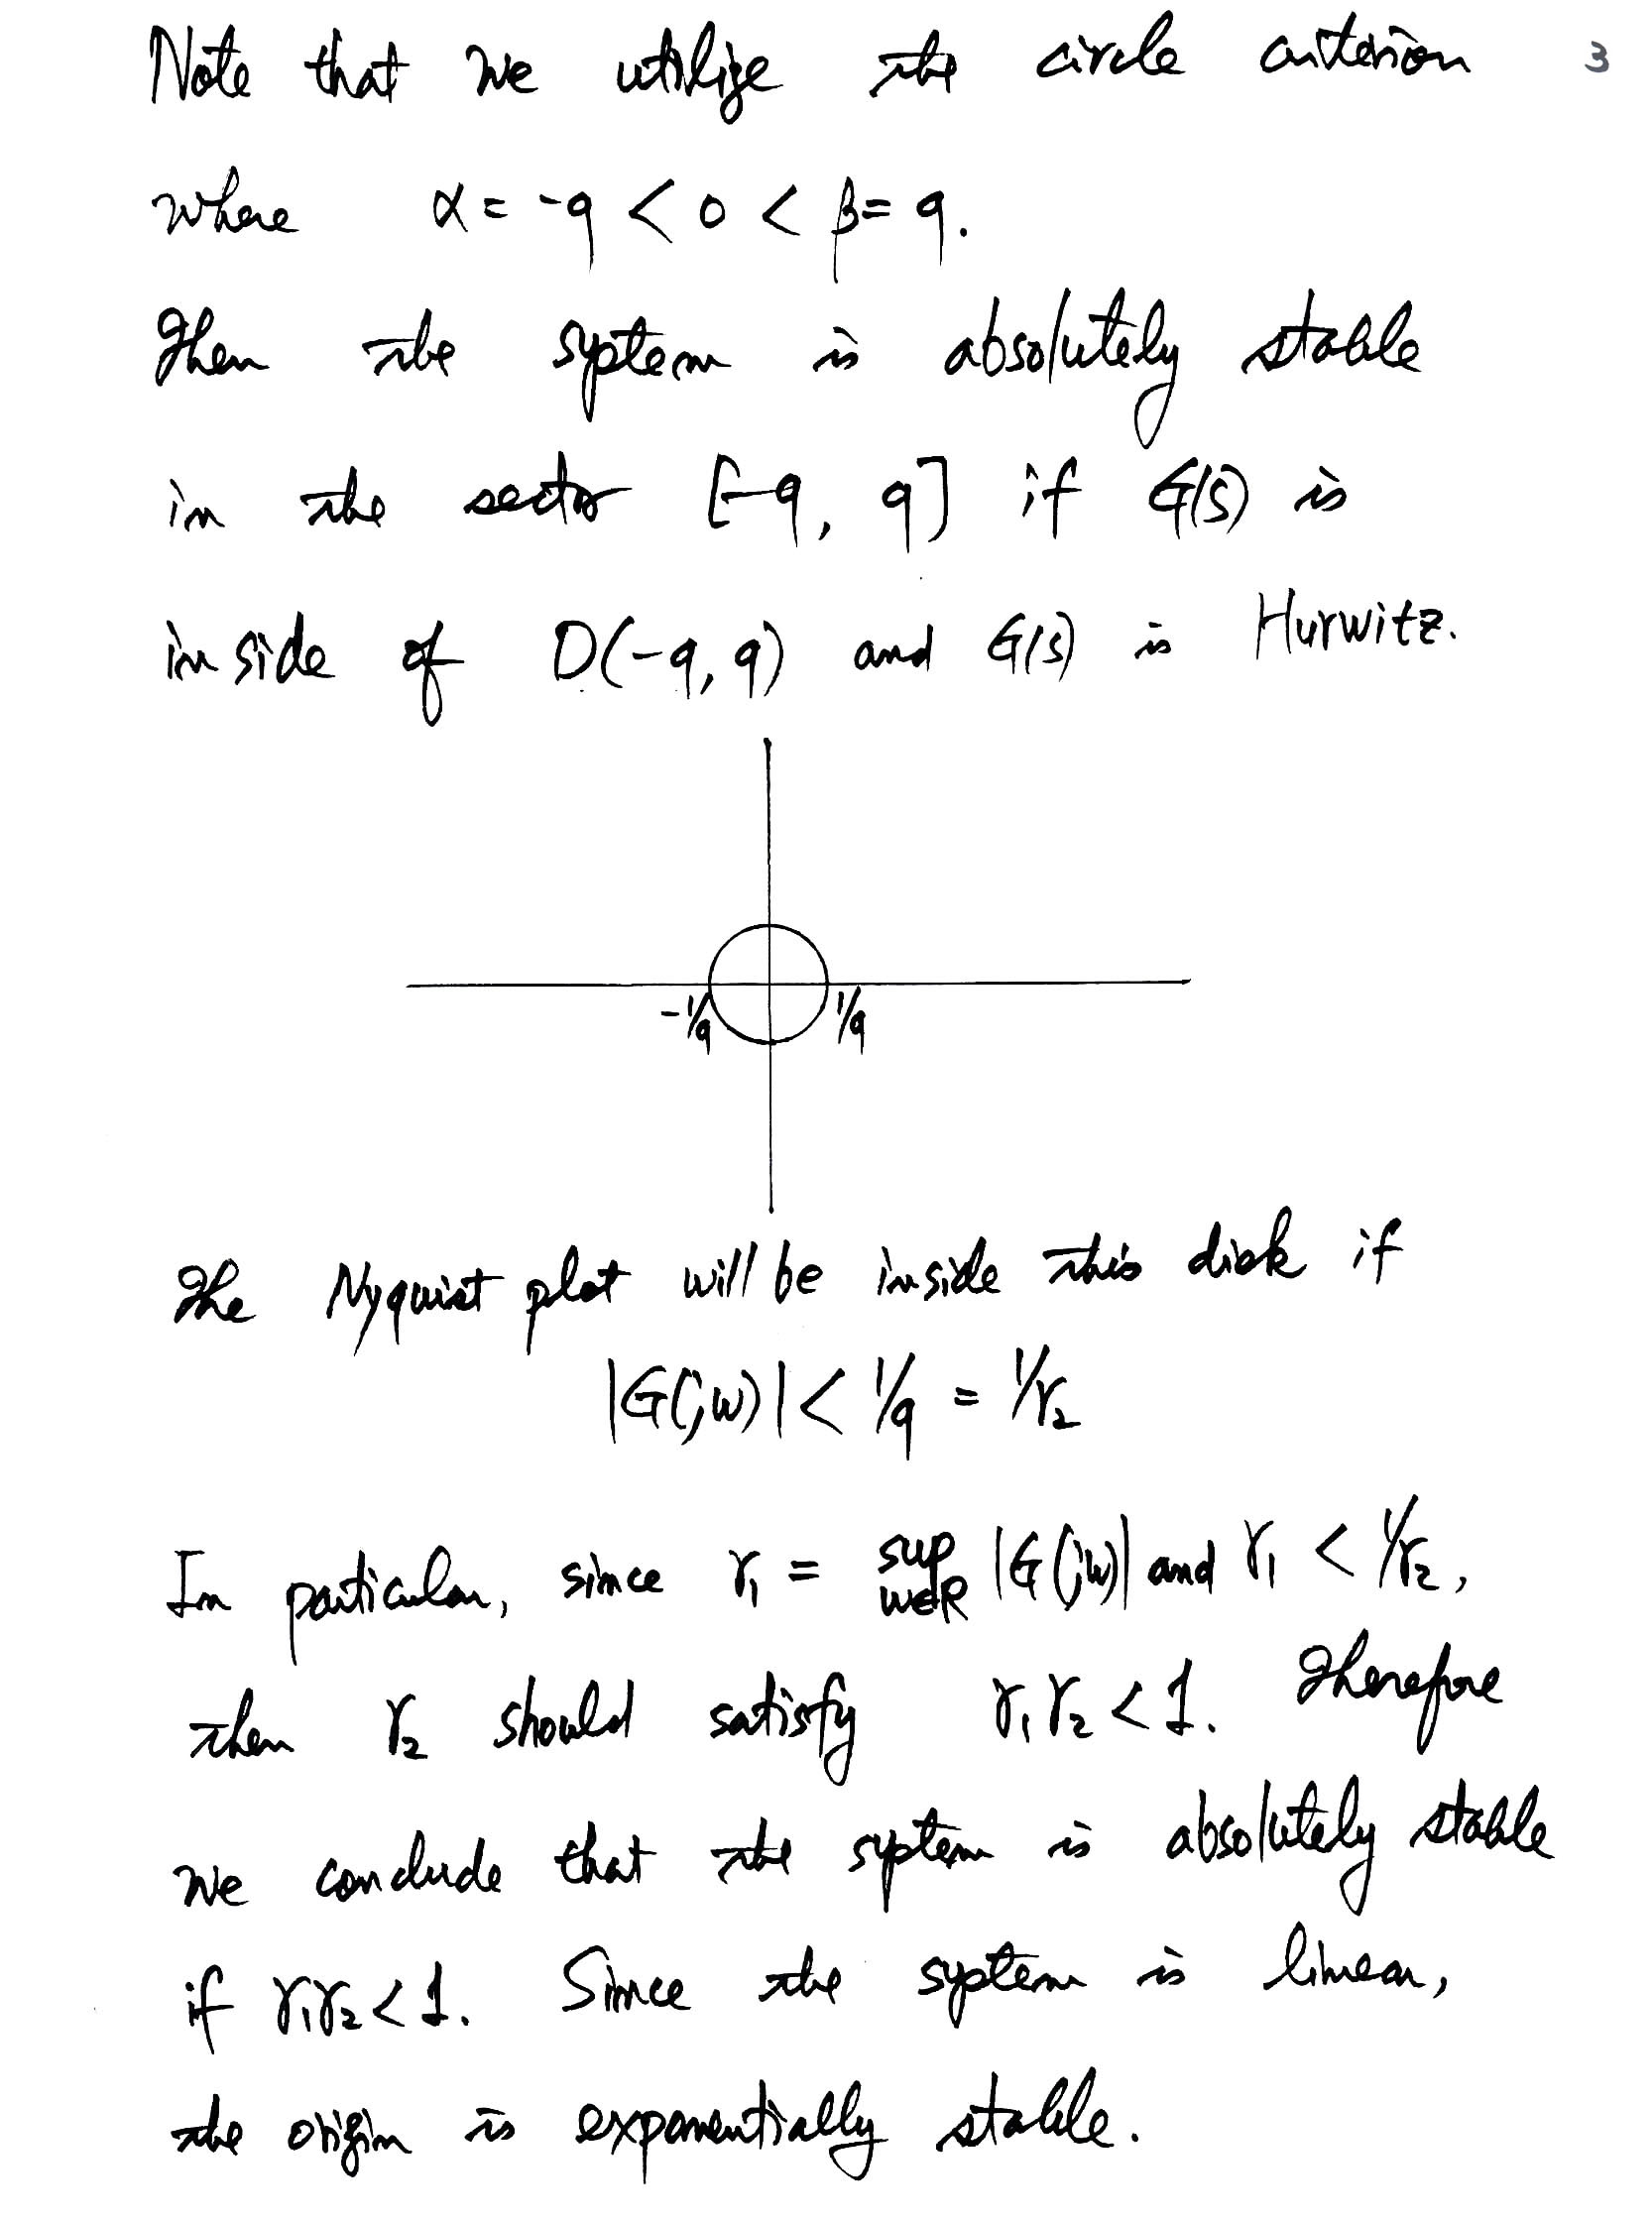 Note that we utilize the circle criterion 3
where α = -q < 0 < β = q.
Then the system is absolutely stable
in the sector [-q, q] if G(s) is
inside of D(-q, q) and G(s) is Hurwitz.
-1/q 1/q
The Nyquist plot will be inside this disk if
|G(jw)| < 1/q = 1/γ₂
In particular, since γ₁ = sup w∈R |G(jw)| and γ₁ < 1/γ₂,
then γ₂ should satisfy γ₁γ₂ < 1. Therefore
we conclude that the system is absolutely stable
if γ₁γ₂ < 1. Since the system is linear,
the origin is exponentially stable.